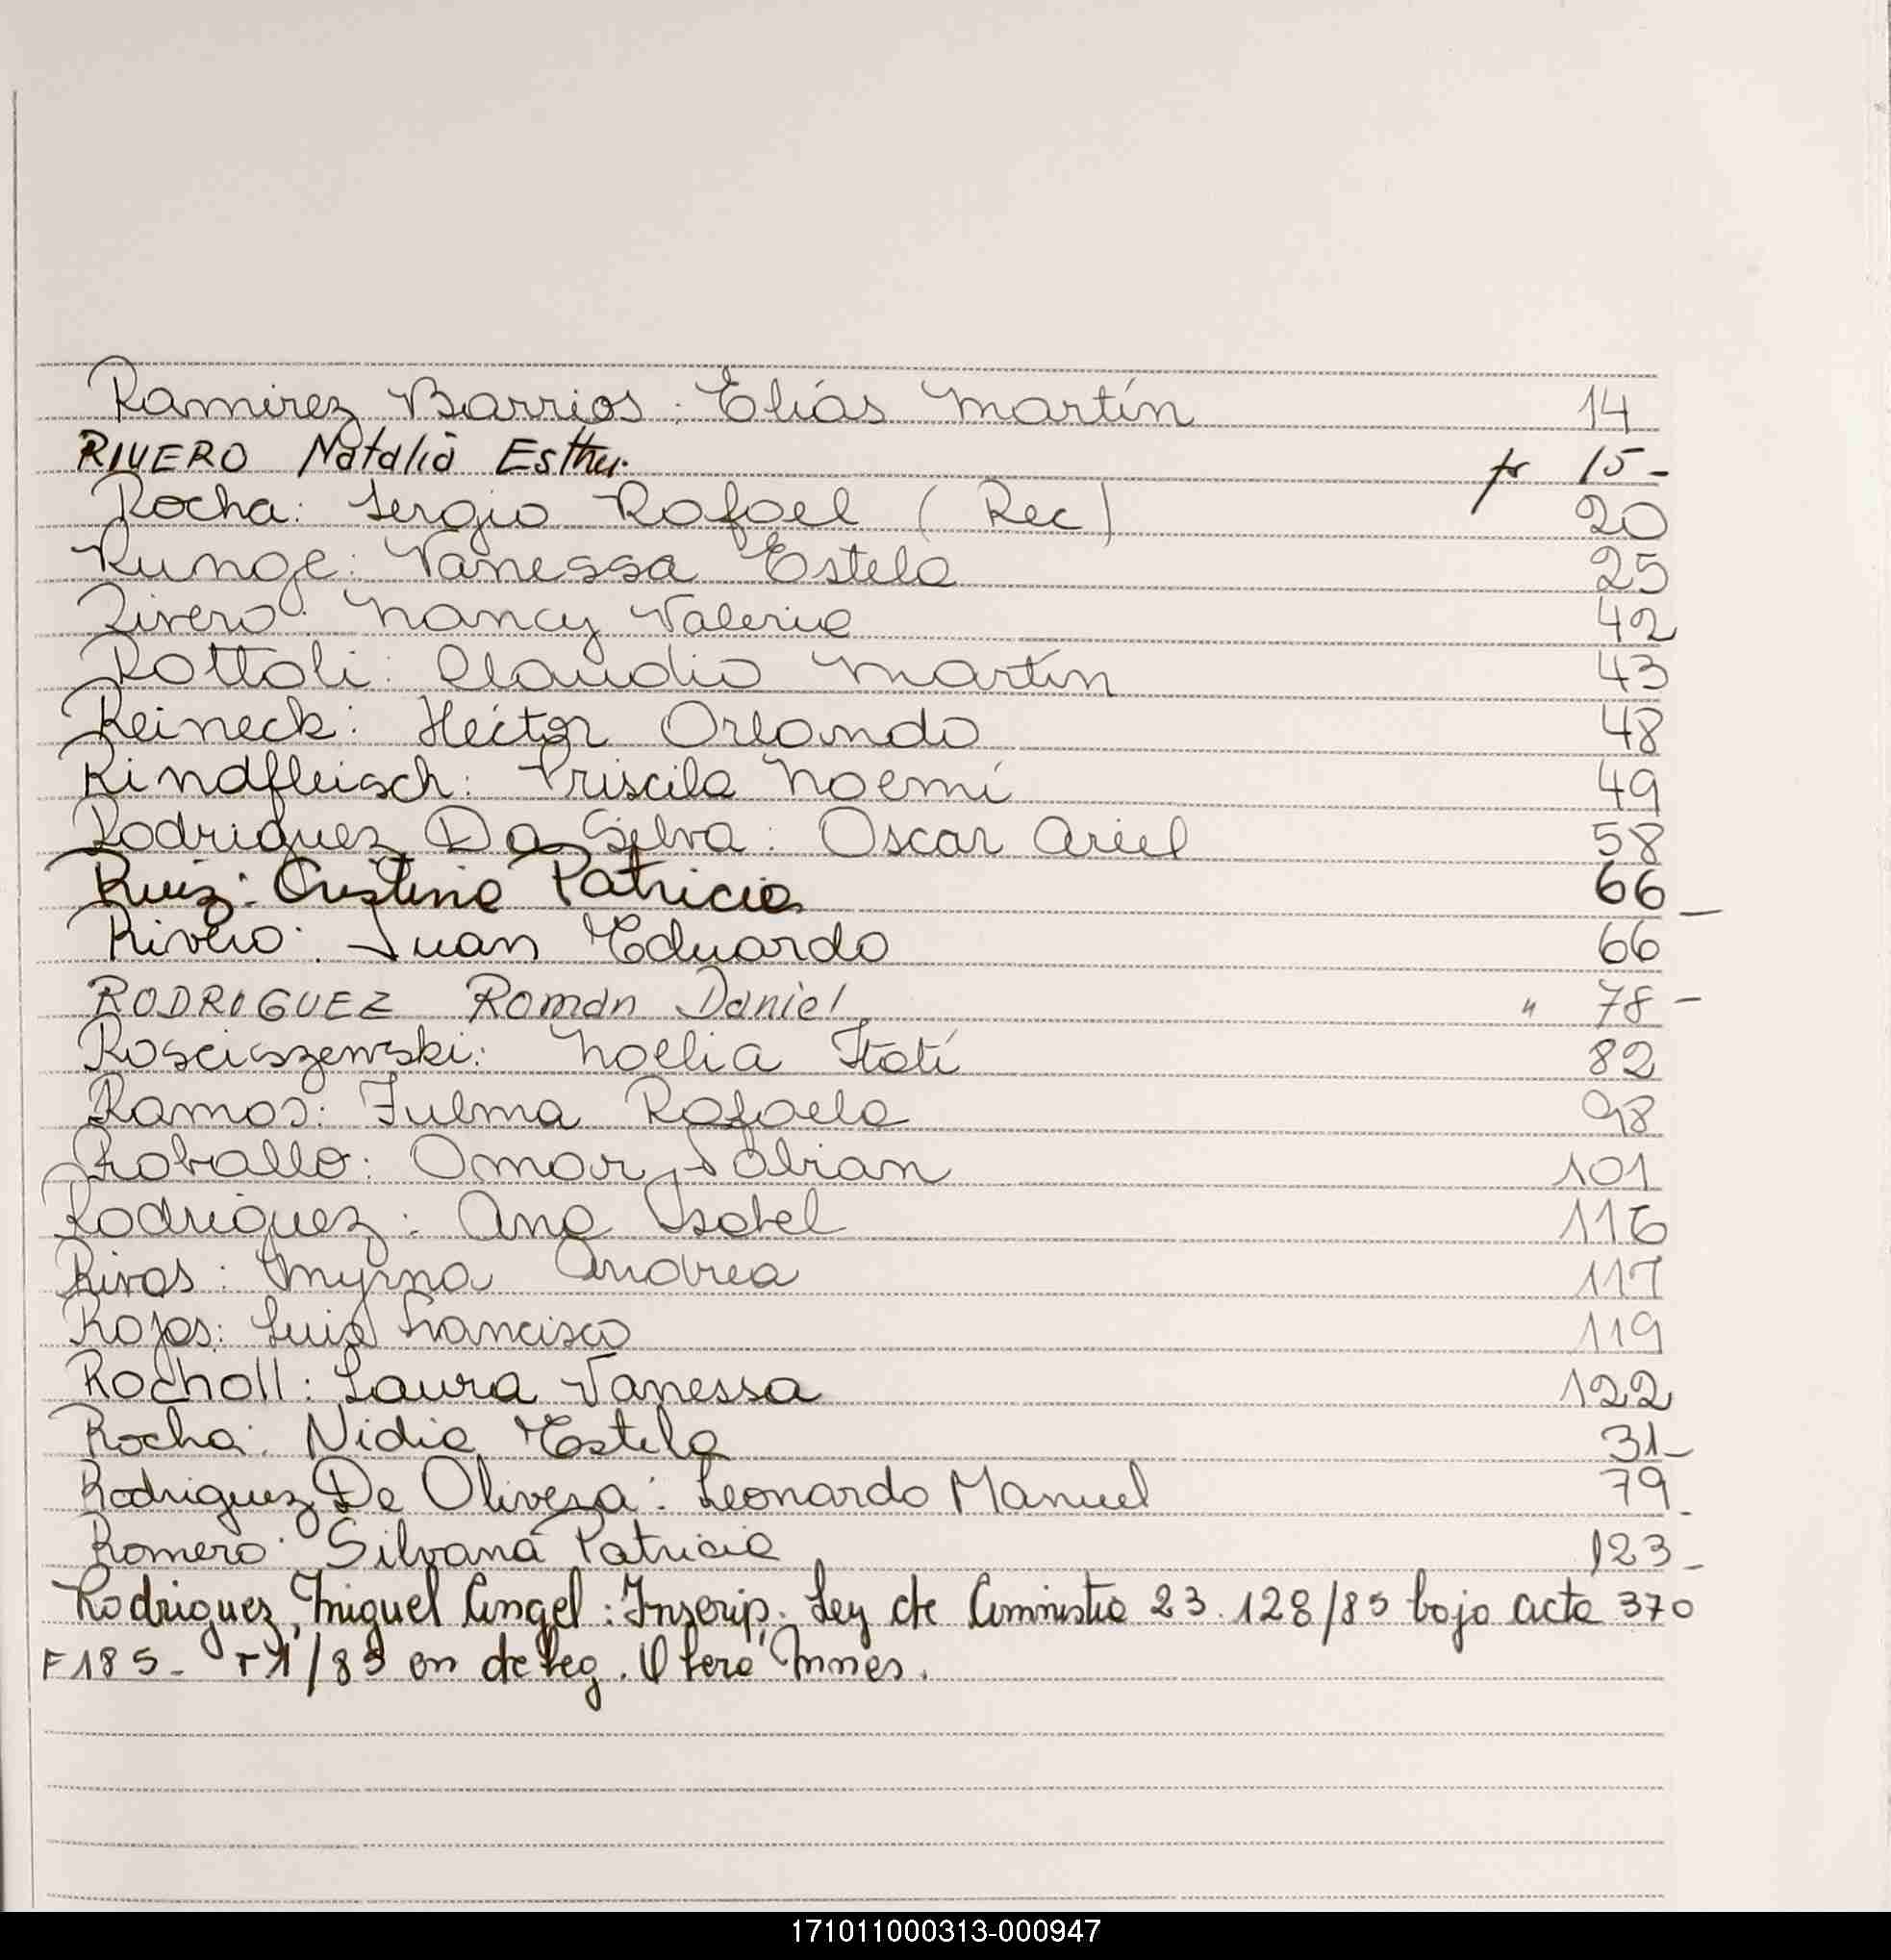 Ramirez Barrios: Elías Martín 14
RIVERO Natalia Esther. fs 15-
Rocha: Sergio Rafael (Rec) 20
Runge: Vanessa Estela 25
Rivero: Nancy Valeria 42
Rottoli: Claudio Martín 43
Reineck: Héctor Orlando 48
Rindfleisch: Priscila Noemí 49
Rodriguez Da Silva: Oscar Ariel 58
Ruiz: Cristina Patricia 66-
Rivero: Juan Eduardo 66
RODRIGUEZ Román Daniel " 78-
Rosciszewski: Noelia Itatí 82
Ramos: Zulma Rafaela 98
Roballo: Omar Fabian 101
Rodriguez: Ana Isabel 116
Rivas: Myrna Andrea 117
Rojas: Luis Francisco 119
Rocholl: Laura Vanessa 122
Rocha: Nidia Estela 31-
Rodriguez De Olivera: Leonardo Manuel 79-
Romero: Silvana Patricia 123-
Rodriguez, Miguel Angel: Inscrip. Ley de Amnistia 23.128/85 bajo acta 370
F185- T1/85 en de leg.
171011000313-000947